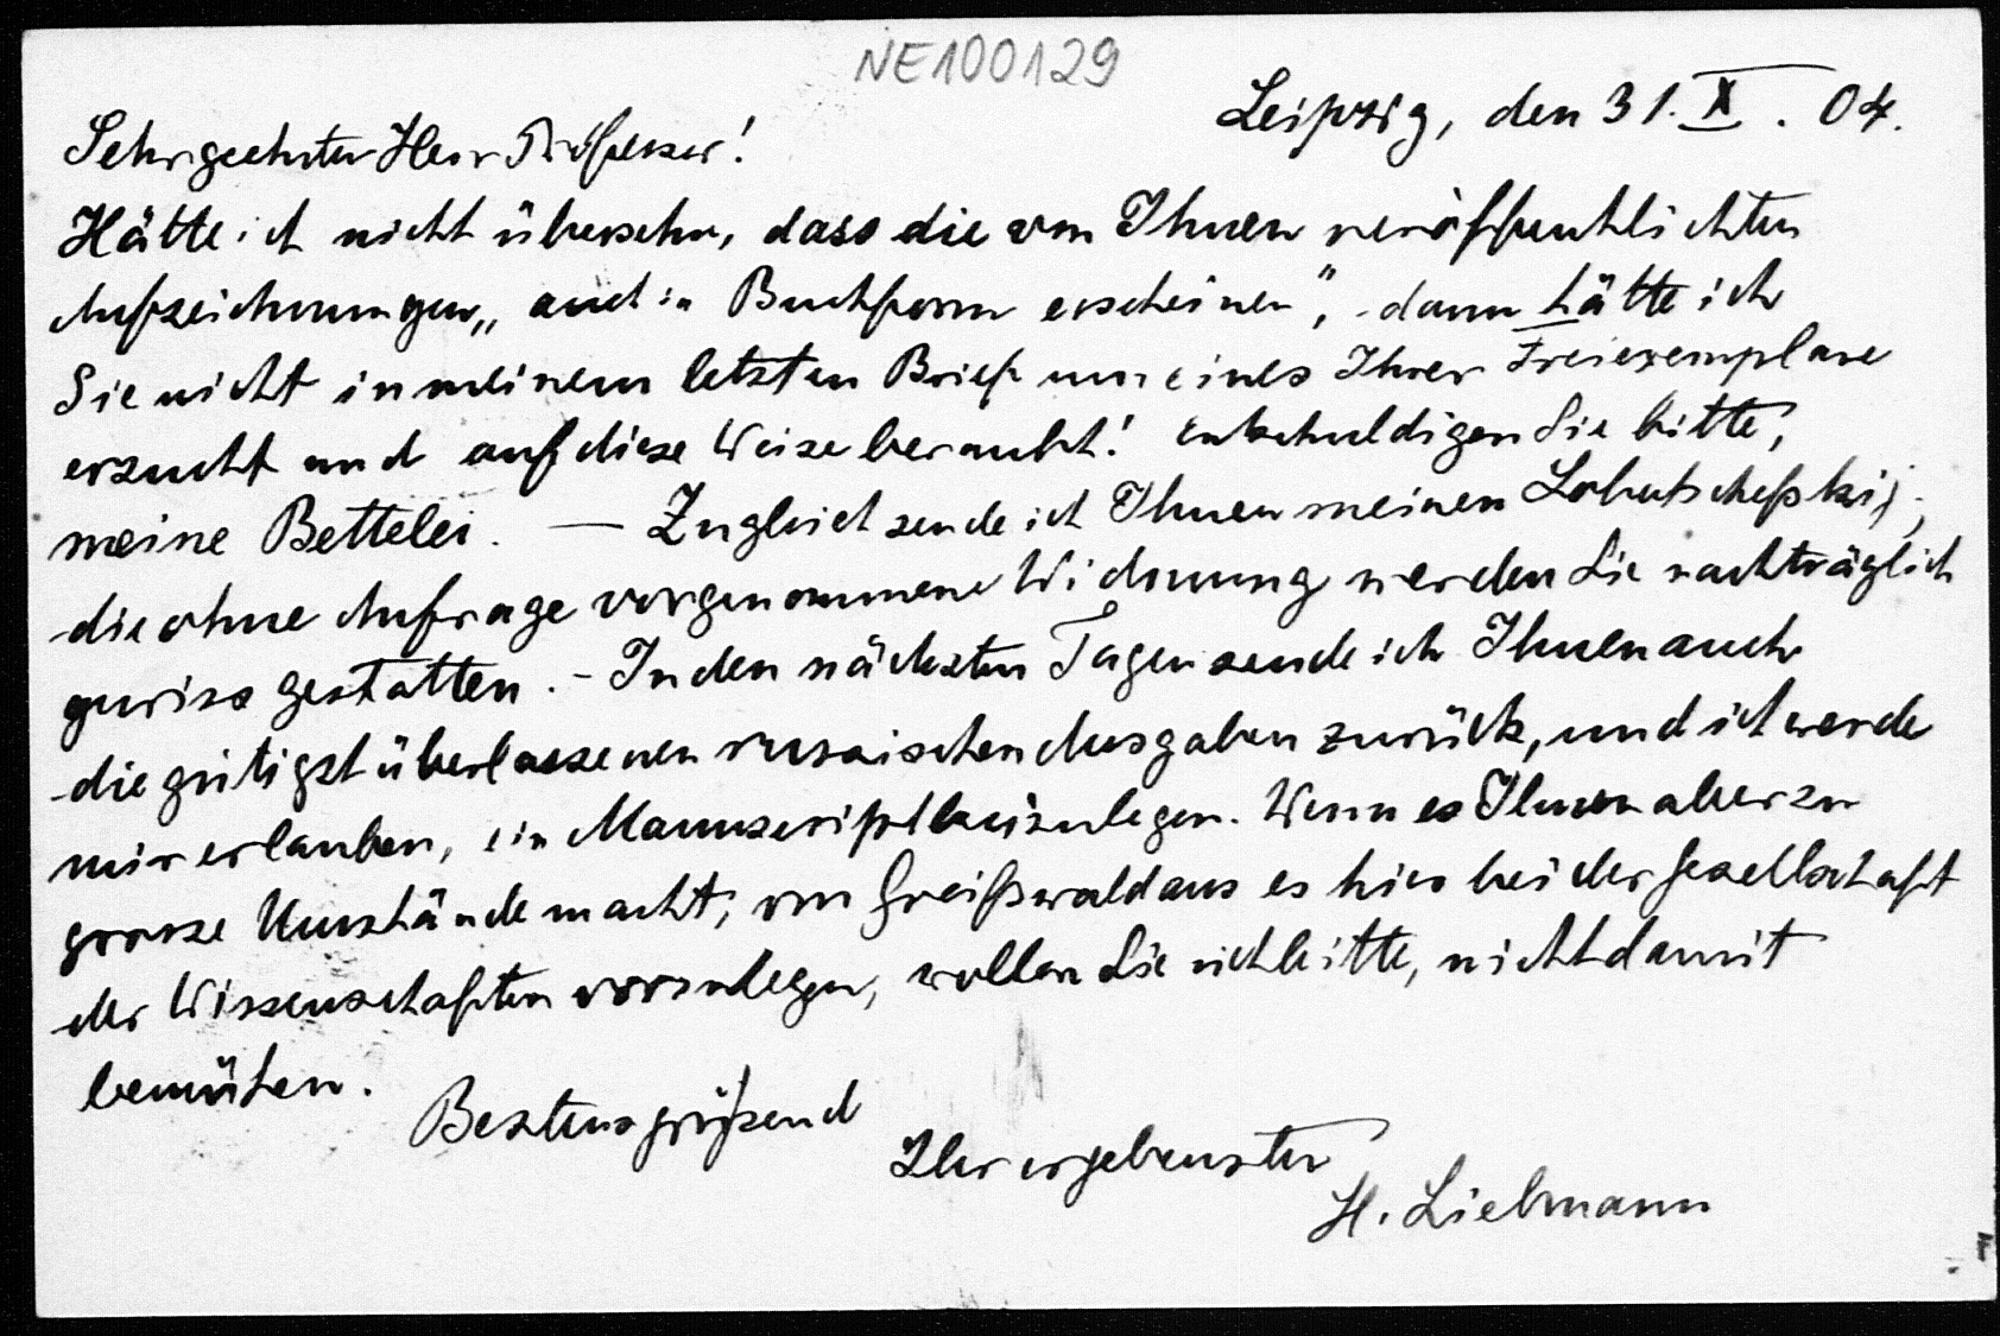 NE100129
Leipzig, den 31. X. 04.
Sehr geehrter Herr Professor!
Hätte ich nicht übersehn, dass die von Ihnen veröffentlichten
Aufzeichnungen „auch in Buchform erscheinen“, dann hätte ich
Sie nicht in meinem letzten Brief um eines Ihrer Freiexemplare
ersucht und auf diese Weise beraubt! Entschuldigen Sie bitte,
meine Bettelei. — Zugleich sende ich Ihnen meinen Lobatschefskij;
die ohne Anfrage vorgenommene Widmung werden Sie nachträglich
gewiss gestatten. - In den nächsten Tagen sende ich Ihnen auch
die gütigst überlassenen russischen Ausgaben zurück, und ich werde
mir erlauben, ein Manuscript beizulegen. Wenn es Ihnen aber zu
grosse Umstände macht, von Greifswald aus es hier bei der Gesellschaft
der Wissenschaften vorzulegen, wollen Sie sich bitte, nicht damit
bemühen.
Bestens grüßend
Ihr ergebenster
H. Liebmann